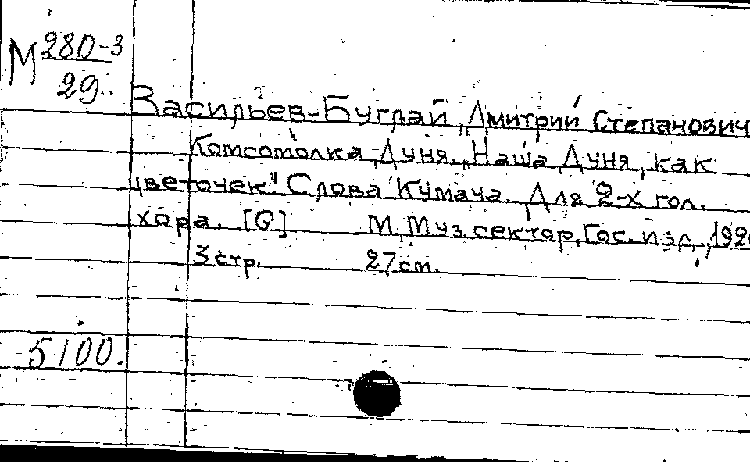 М 280-3
29
Васильев-Буглай, Дмитрий Степанович
Комсомолка Дуня. „Наша Дуня, как
цветочек" Слова Кумача. Для 2-х гол.
хора. [G] М. Муз. сектор, Гос. изд.,
3 стр. 27 см.
5100.